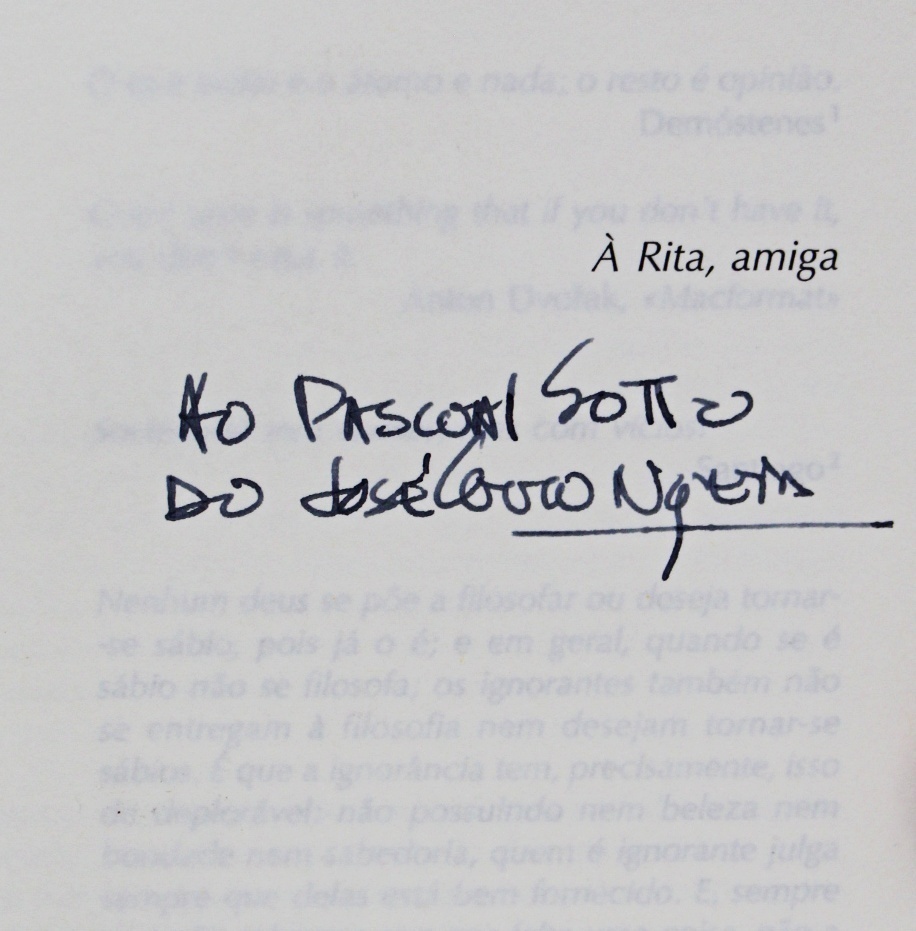 o resto é opinião.
Demóstenes¹
something that if you don't have it,
À Rita, amiga
Anton Dvořak, «Macformat»
AO PASCOAL SOTTO
com vícios.
DO José
Nenhum deus se põe a filosofar ou deseja tornar-
-se sábio, pois já o é; e em geral, quando se é
sábio não se filosofa; os ignorantes também não
se entregam à filosofia nem desejam tornar-se
sábios. É que a ignorância tem, precisamente, isso
de deplorável: não possuindo nem beleza nem
bondade nem sabedoria, quem é ignorante julga
sempre que delas está bem fornecido. E, sempre